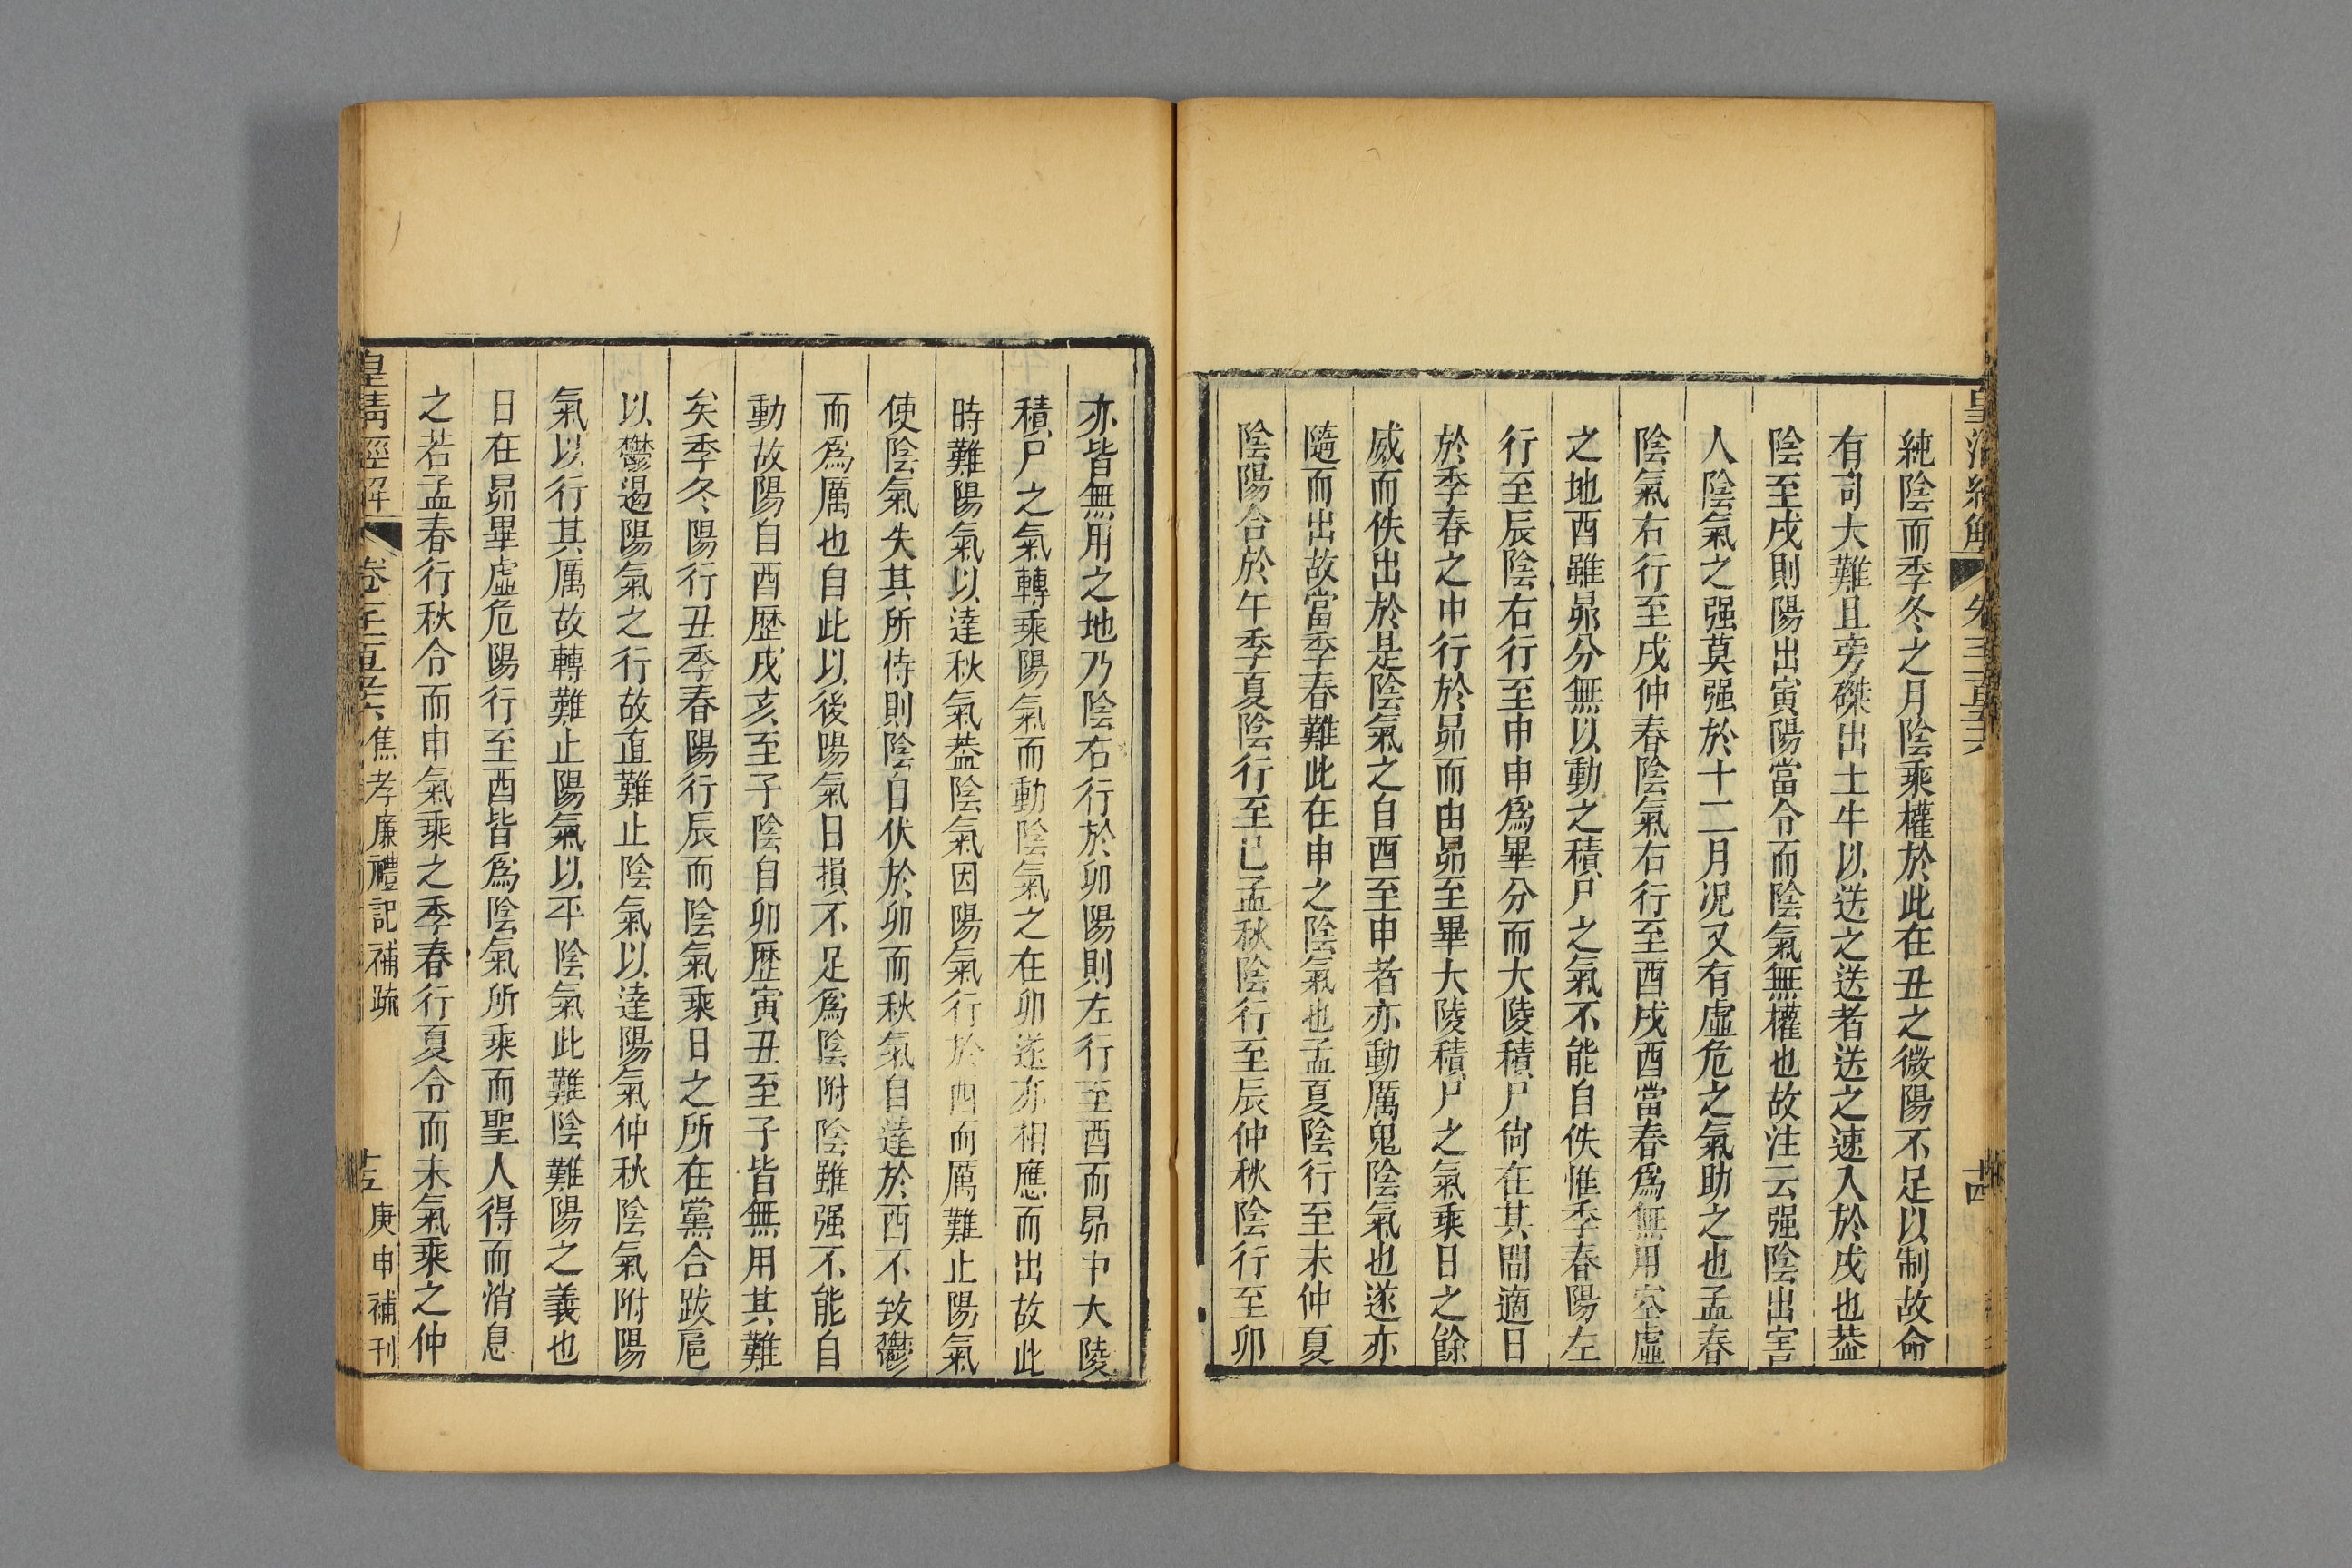 純陰而季冬之月陰乘權於此在丑之微陽不足以制故命
有司大難且旁磔出土牛以送之送者送之速入於戌也葢
陰至戌則陽出寅陽當令而陰氣無權也故注云强陰出害
人陰氣之强莫强於十二月况又有虛危之氣助之也孟春
陰氣右行至戌仲春陰氣右行至酉戌酉當春爲無用空虛
之地酉雖昴分無以動之積尸之氣不能自佚惟季春陽左
行至辰陰右行至申申爲畢分而大陵積尸尙在其間適日
於季春之中行於昴而由昴至畢大陵積尸之氣乘日之餘
威而佚出於是陰氣之自酉至申者亦動厲鬼陰氣也遂亦
隨而出故當季春難此在申之陰氣也孟夏陰行至未仲夏
陰陽合於午季夏陰行至巳孟秋陰行至辰仲秋陰行至卯
亦皆無用之地乃陰右行於卯陽則左行至酉而昴中大陵
積尸之氣轉乘陽氣而動陰氣之在卯遂亦相應而出故此
時難陽氣以達秋氣葢陰氣因陽氣行於酉而厲難止陽氣
使陰氣失其所恃則陰自伏於卯而秋氣自達於西不致鬱
而爲厲也自此以後陽氣日損不足爲陰附陰雖强不能自
動故陽自酉歷戌亥至子陰自卯歷寅丑至子皆無用其難
矣季冬陽行丑季春陽行辰而陰氣乘日之所在黨合跋扈
以鬱遏陽氣之行故直難止陰氣以達陽氣仲秋陰氣附陽
氣以行其厲故轉難止陽氣以平陰氣此難陰難陽之義也
日在昴畢虛危陽行至酉皆爲陰氣所乘而聖人得而消息
之若孟春行秋令而申氣乘之季春行夏令而未氣乘之仲
皇淸經解
焦孝廉禮記補疏
庚申補刊